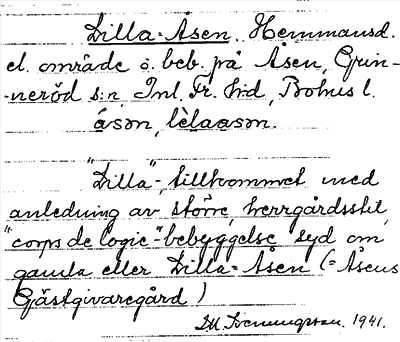 Lilla-Åsen. Hemmansd.
el. område o. beb. på Åsen, Grin-
neröd s:n, Inl. Fr. hd, Bohus l.
åsɔn, lèlaasɔn.
"Lilla"-, tillkommet med
anledning av större, herrgårdsstil,
"corps de logie"-bebyggelse syd om
gamla eller Lilla-Åsen (=Åsens
Gästgivaregård)
1941.